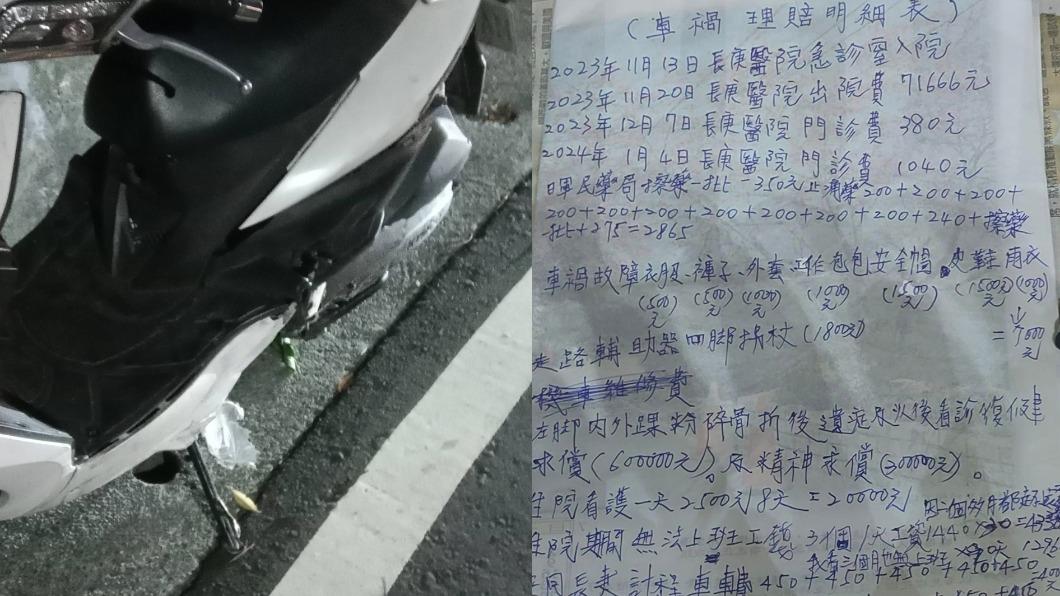 (車禍理賠明細表)
2023年11月13日長庚醫院急診室入院
2023年11月20日長庚醫院出院費71666元
2023年12月7日長庚醫院門診費380元
2024年1月4日長庚醫院門診費1040元
民藥局擦藥一批=350元止痛藥200+200+200+
200+200+200+200+200+200+200+240+擦藥
一批+275=2865
車禍故障衣服、褲子、外套、工作包包安全帽、皮鞋雨衣
(500元) (500元) (1000元) (1000元) (1500元) (1500元) (1000元)
走路輔助器四腳拐杖(1800元) =7000元
機車維修費
左腳內外踝粉碎骨折後遺症及以後看診復健
求償(600000元)及精神求償(300000元)。
住院看護一天2500元8天=20000元
住院期間無法上班工資3個1天工資1440
長庚計程車輛450+450+450+450+450